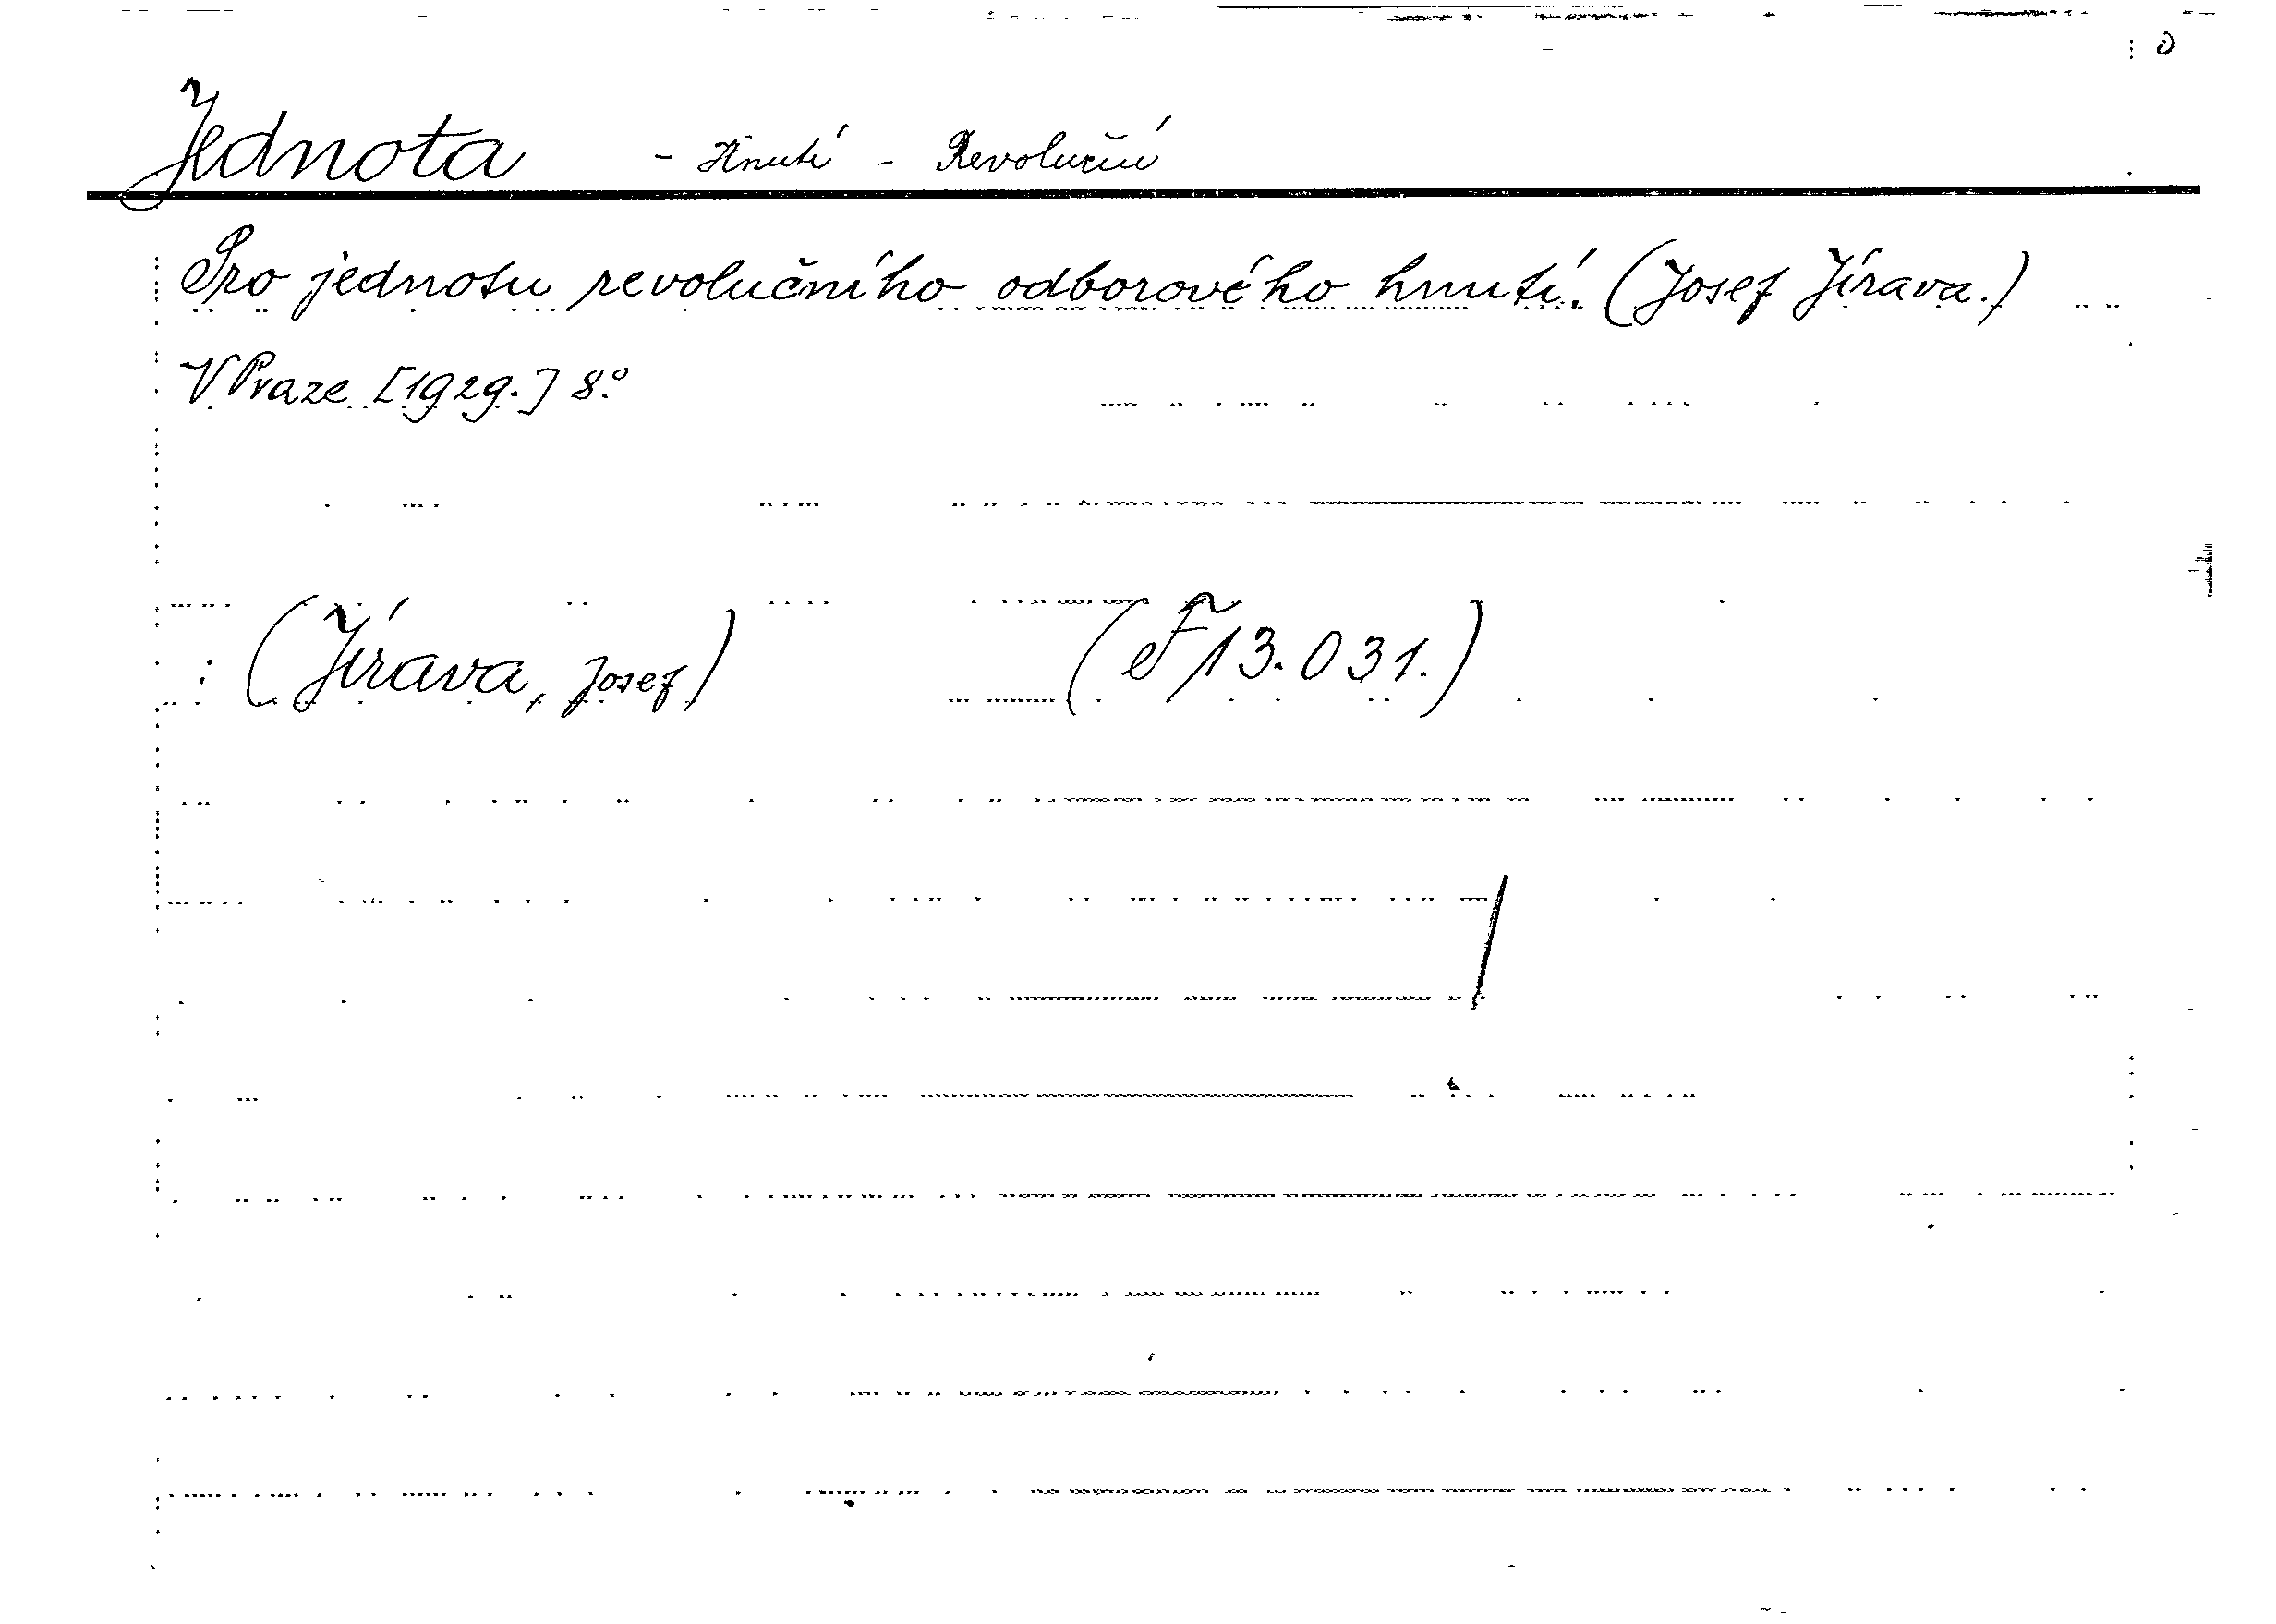 Jednota - Hnutí - Revoluční
Pro jednotu revolučního odborového hnutí. (Josef Jírava.)
V Praze [1929.] 8.°
: (Jírava, Josef) (F 13.031.)